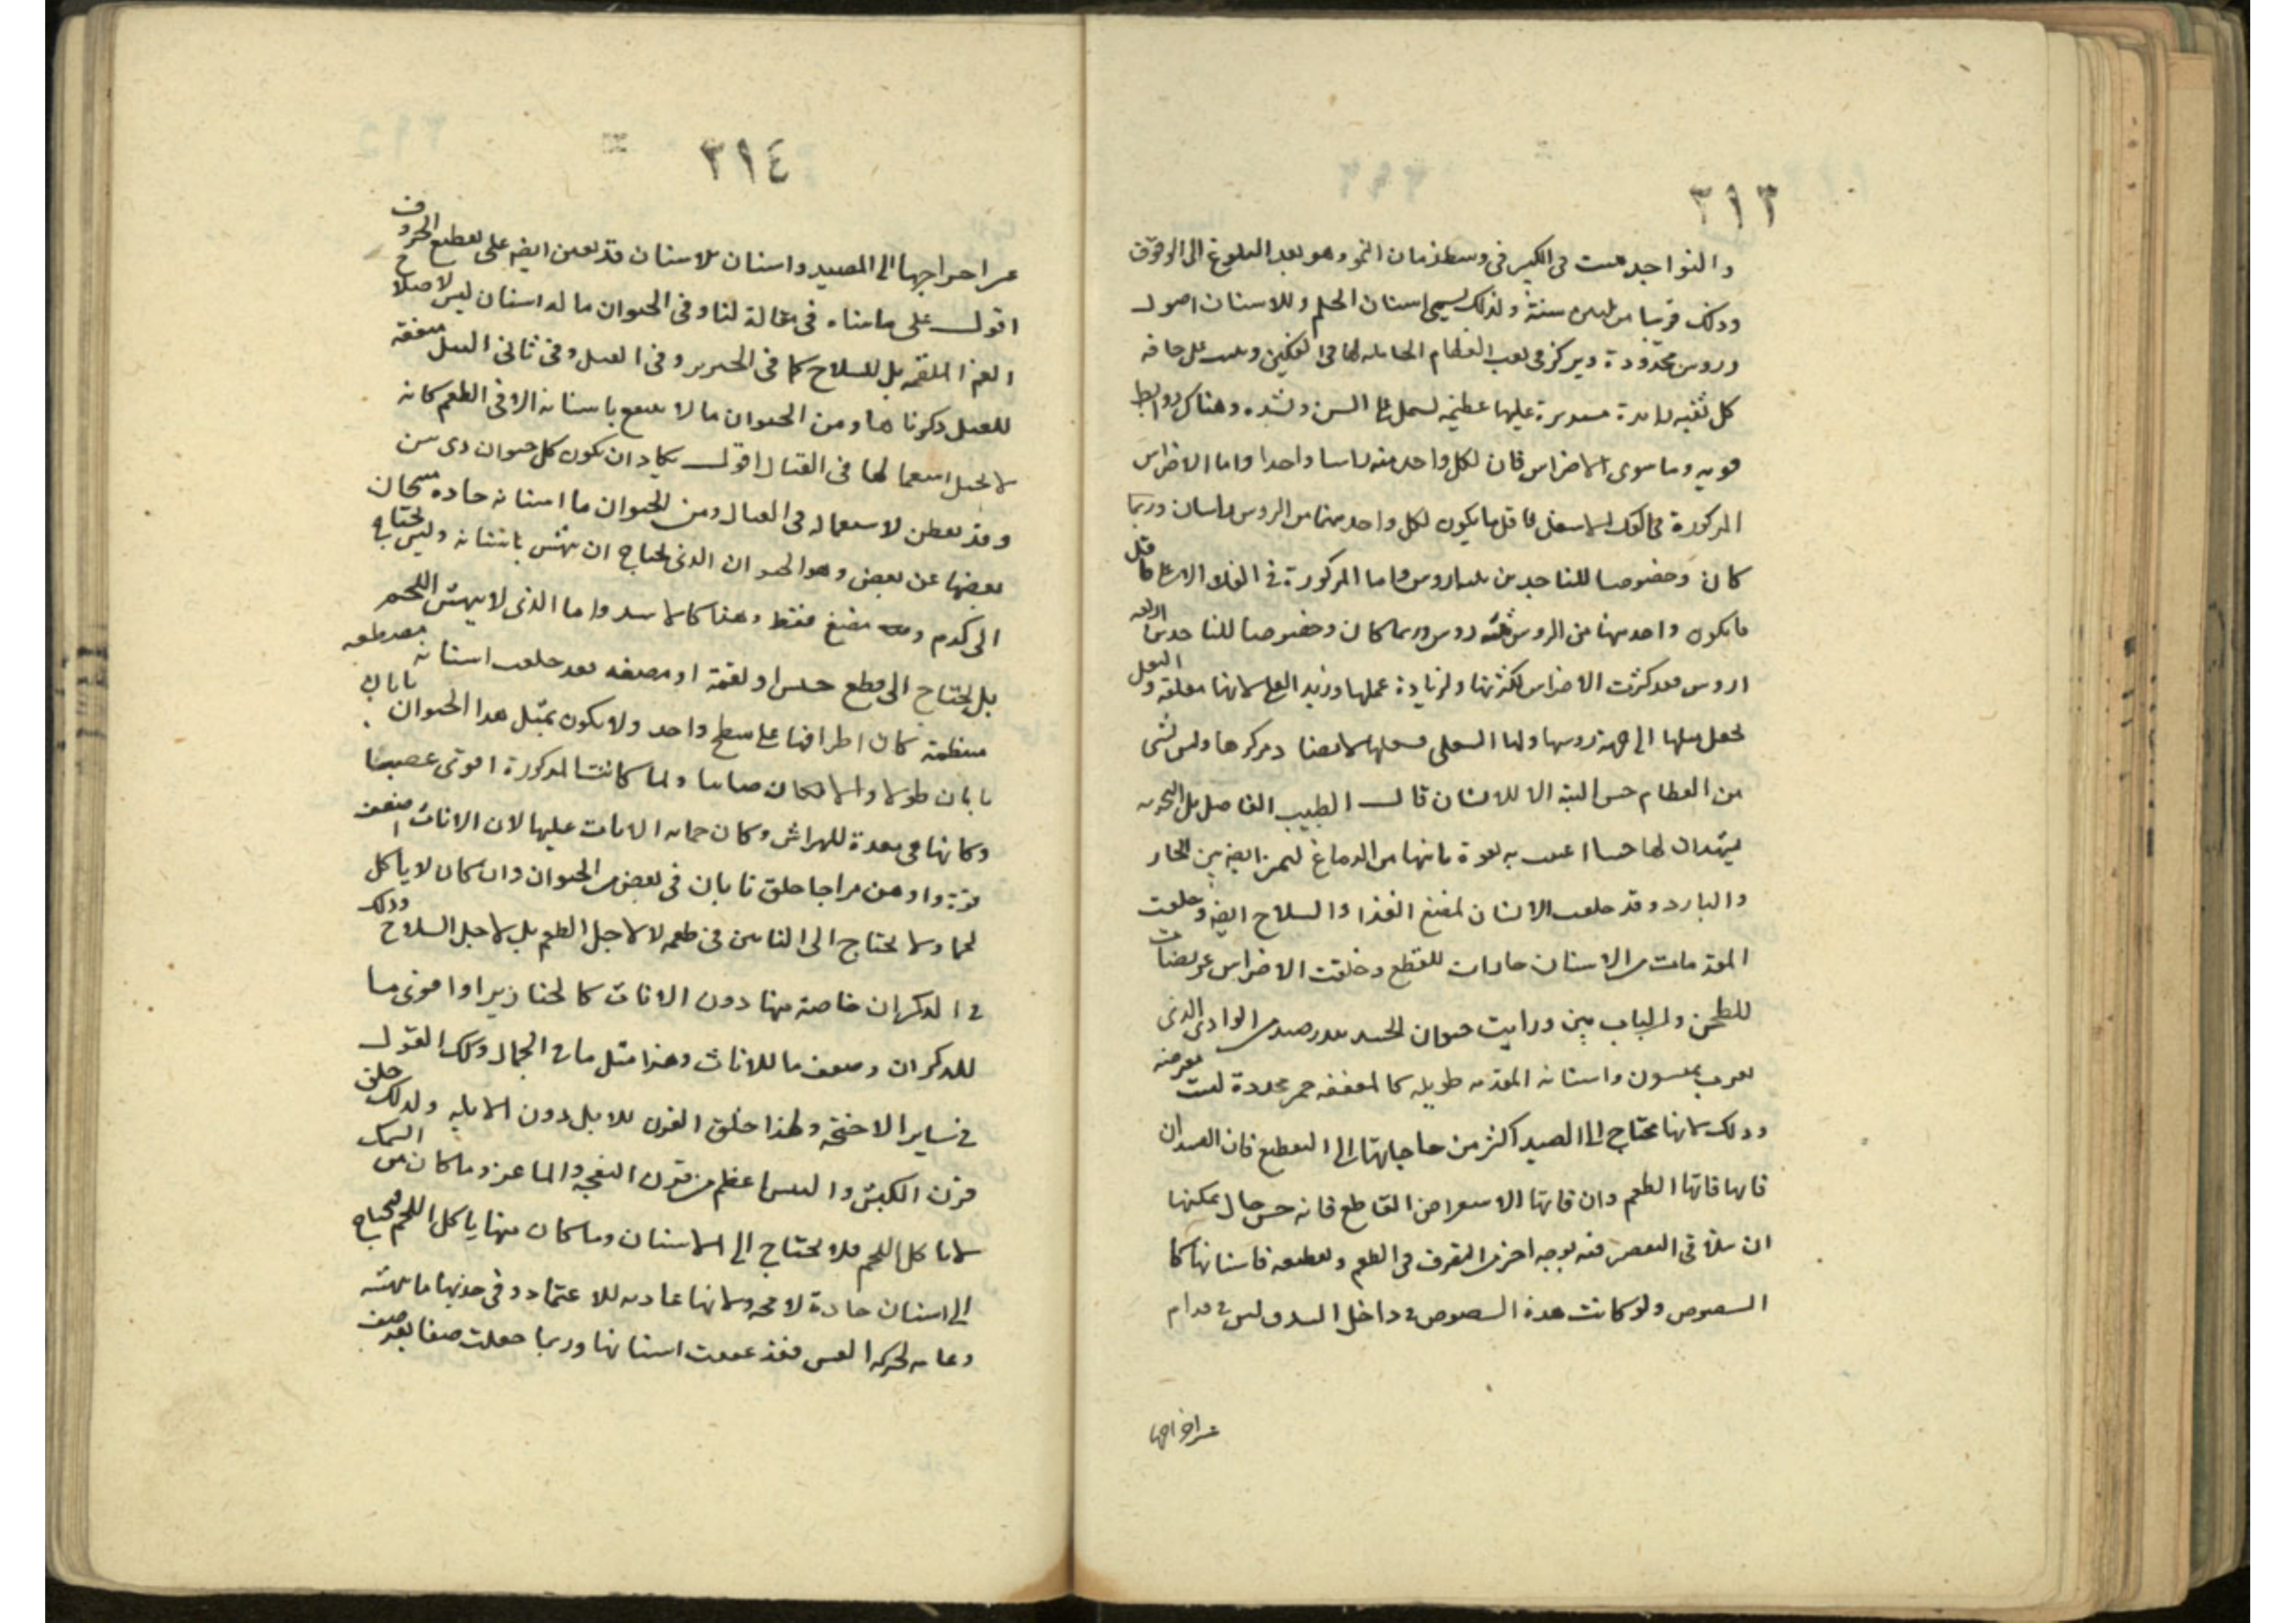 ٣١٣
والنواجد ست فى الكبر فى وسط زمان النمو وهو بعد البلوغ الى الوقوف
وذلك قريبا من ثلثين سنة ولذلك يسمى اسنان الحلم وللاسنان اصول
وروس محدودة ويركز فى ثقب العظام الحاملة لها فى الفكين وينبت على حافة
كل ثقبة زايدة مستديرة عليها عظيمة تشمل على السن وتشده وهناك روابط
قوية وما سوى الاضراس فان لكل واحد منه راسا واحدا واما الاضراس
المركوزة فى الفك الاسفل فاقل ما يكون لكل واحد منها من الروس راسان وربما
كان وخصوصا للناجدين ثلثة روس واما المركوزة فى الفك الاعلى فاقل
ما يكون واحد منها من الروس ثلثة روس وربما كان وخصوصا للناجدين اربعة
اروس فقد كثرت الاضراس لكثرتها ولزيادة عملها وزيد العليا لانها معلقة والثقل
يجعل ميلها الى جهة روسها واما السفلى فثقلها لا يضاد مركزها وليس لشى
من العظام حس البتة الا للاسنان قال الطبيب الفاضل بل التجربة
يشهدان لها حسا اعينت به بقوة تاتيها من الدماغ ليميز ايضا بين الحار
والبارد وقد خلقت الاسنان لمضغ الغذا والسلاح ايضا وخلقت
المقدمات من الاسنان حادات للقطع وخلقت الاضراس عريضات
للطحن والانياب بين ورايت حيوان الجسد بعد رصد من الوادى الذى
بقرب واسنانه المقدمة طويلة كالمعقفة حمر محددة ليست بعرضة
وذلك لانها تحتاج الى الصيد اكثر من حاجاتها الى التقطيع فان الصيد ان
فاتها فاتها الطعم وان فاتها الاستعراض القاطع فانه حس حال يمكنها
ان تتلافى التقصير فيه بوجه اخر من التصرف فى الطعم وتقطيعه فاسنانها كا
الشصوص ولو كانت هذه الشصوص فى داخل الشدق ليس فى قدام
عن اخراجها
٣١٤
عن اخراجها الى المصيد واسنان الاسنان قد تعين ايضا على تقطيع الحروف
اقول على ما بيناه فى مقالة لنا وفى الحيوان ما له اسنان ليس لاصلاح
الغذا الملقمة بل للسلاح كما فى الخنزير وفى الفيل وفى ثانى الفيل منفعة
للفيل ذكرناها ومن الحيوان ما لا ينتفع باسنانه الا فى الطعم كانه
لا يحيل استعمالها فى القتال اقول يكاد ان يكون كل حيوان ذى سن
وقد يفطن لاستعماله فى القتال ومن الحيوان ما اسنانه حادة
بعضها عن بعض وهو الحيوان الذى يحتاج ان ينهش باسنانه وليس يحتاج
الى كدم ومضغ فقط وهذا كالاسد واما الذى لا ينهش اللحم
بل يحتاج الى قطع حشيش او لقمة او مضغة فقد خلقت اسنانه
منتظمة كان اطرافها على سطح واحد ولا يكون بمثل هذا الحيوان نابان
نابان طولا والا لكان ولما كانت الذكورة اقوى عصبا
وكانها هى معدة للهراش وكان حماية الاناث عليها لان الاناث اضعف
قوة واوهن مزاجا خلق نابان فى بعض من الحيوان وان كان لا ياكل
لحما ولا يحتاج الى النابين فى طعمه لا لاجل الطعم بل لاجل السلاح وذلك
فى الذكران خاصة منها دون الاناث كالخنازير او اقوى ما
للذكران وضعف ما للاناث وهذا مثل ما فى الجمال وكذلك القول
فى ساير الاجنحة ولهذا خلق القرن للايل دون الايلة ولذلك خلق
قرن الكبش والتيس اعظم من قرن النعجة والماعز وما كان من السمك
لا ياكل اللحم فلا يحتاج الى الاسنان وما كان منها ياكل اللحم فيحتاج
الى اسنان حادة لا محة ولانها عادمة للاعتماد وفى حوزها ما ينهشه
وعا لحركة النفس فقد عقفت اسنانها وربما جعلت صفا بعد صف